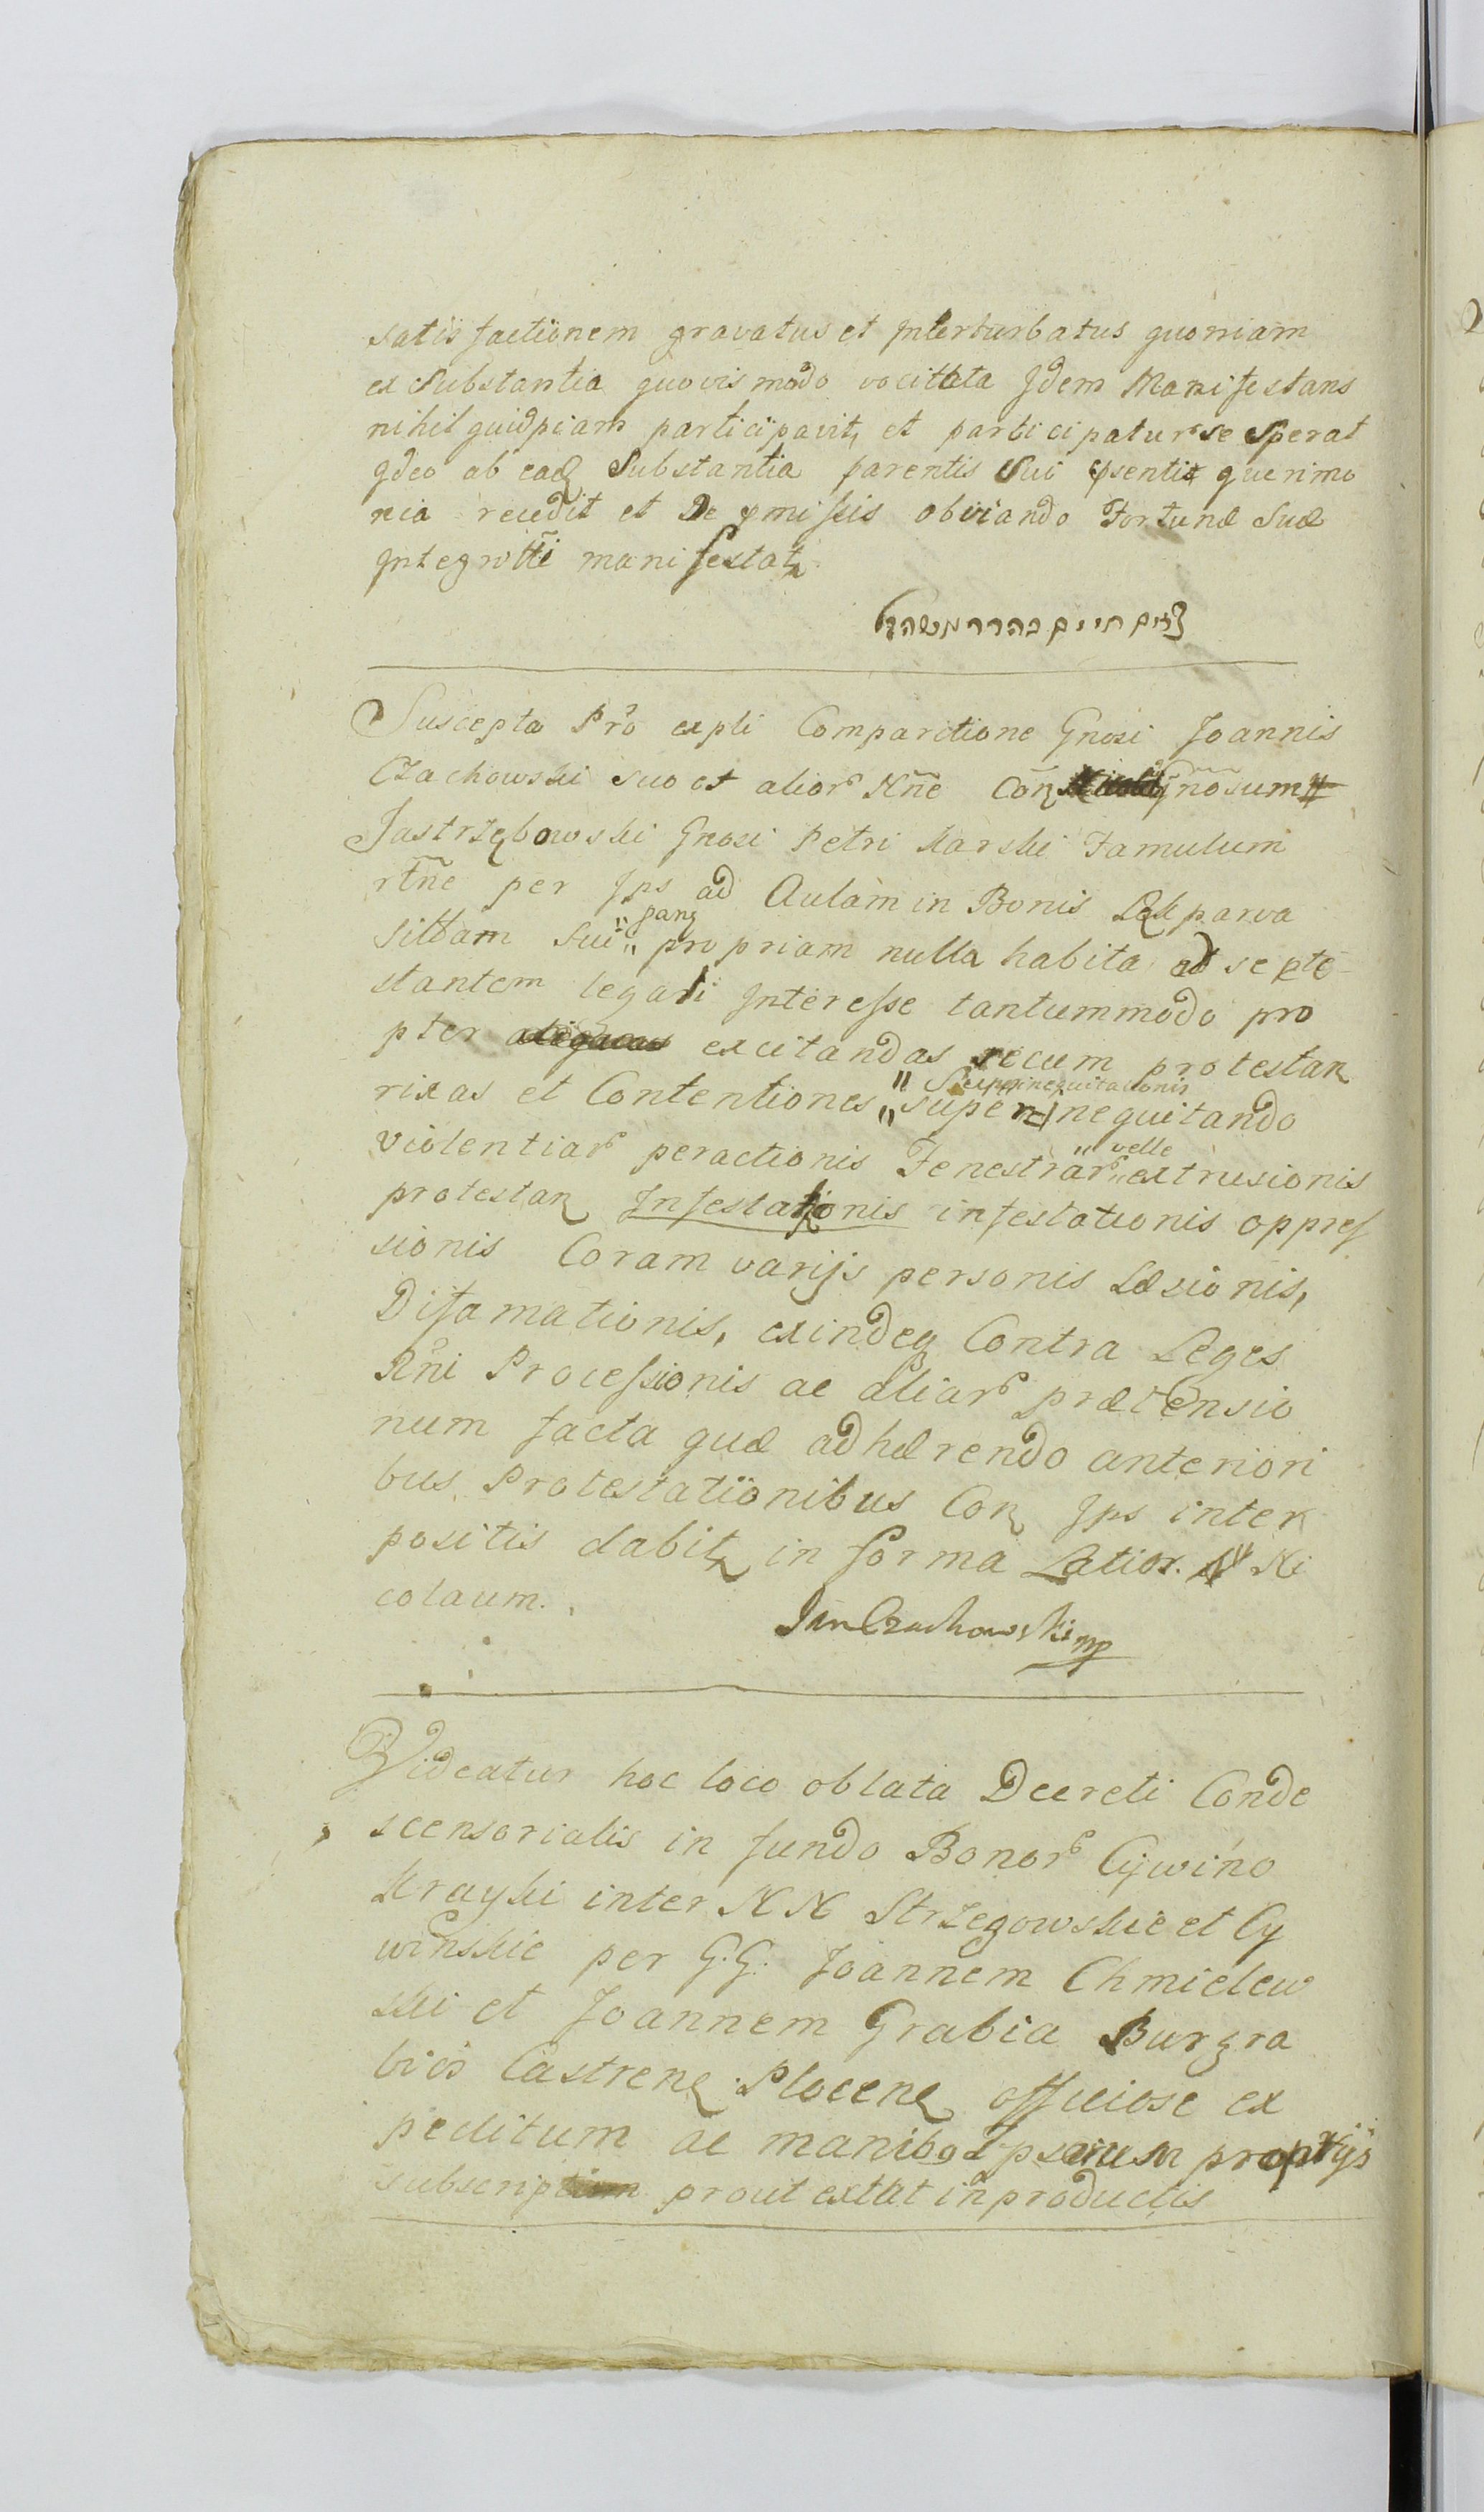 satisfactionem gravatus et Interturbatus quoniam
ex Substantia quovis modo vocitata Idem Manifestans
nihil quidpiam participavit, et participatur se Sperat
Ideo ab eadq Substantia parentis Sui pSentiae querimo
nia recedit et De pmissis obviando Fortunæ Suæ
Integritti manifestatq
חיים
Suscepta Pro expli Comparitione Gnosi Joannis
Czachowski suo et alior Nñe Conq Gnosum #
Jastrzębowski Gnosi Petri Karski Famulum
rtñe per Ips ad Aulam in Bonis Lęk parva
sittam Sui " panq " propriam nulla habita ad se pte
stantem legali Interesse tantummodo pro
pter excitandas secum protestanq
rixas et Contentiones " Superinequitationis " superinequitando
violentiar peractionis Fenestrar " velle " extrusionis
protestanq Infestationis infestationis oppres
sionis Coram varijs personis Læsionis,
Difamationis, exindeq Contra Leges
Rñi Processionis ac aliar prætensio
num facta quæ adhærendo anteriori
bus Protestationibus Conq Ips inter
positis dabitq in forma Latior. # Ni
colaum.
Jan Czachowski mp
Videatur hoc loco oblata Decreti Conde
scensorialis in fundo Bonor Cywino
Krayki inter NN Strzegowskie et Cy
winskie per G.G. Joannem Chmielew
ski et Joannem Grabia Burgra
bios Castrenq Plocenq officiose ex
peditum ac manibq Ipsorum proprijs
subscriptum prout extat in productis